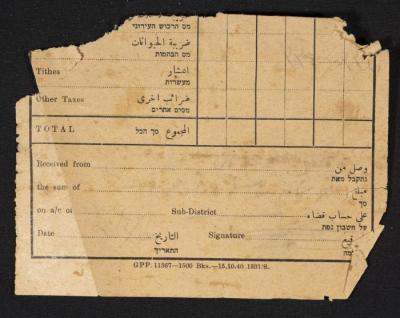 מס הרכוש העירוני
ضريبة الحيوانات
מס הבהמות
Tithes اعشار
מעשרות
Other Taxes ضرائب اخرى
מסים אחרים
TOTAL المجموع סך הכל
Received from وصل من
נתקבל מאת
the sum of مبلغ
סך
on a/c of Sub-District على حساب قضاء
על חשבון נפת
Date التاريخ Signature توقيع
התאריך
GPP. 11367—1500 Bks.—15.10.40